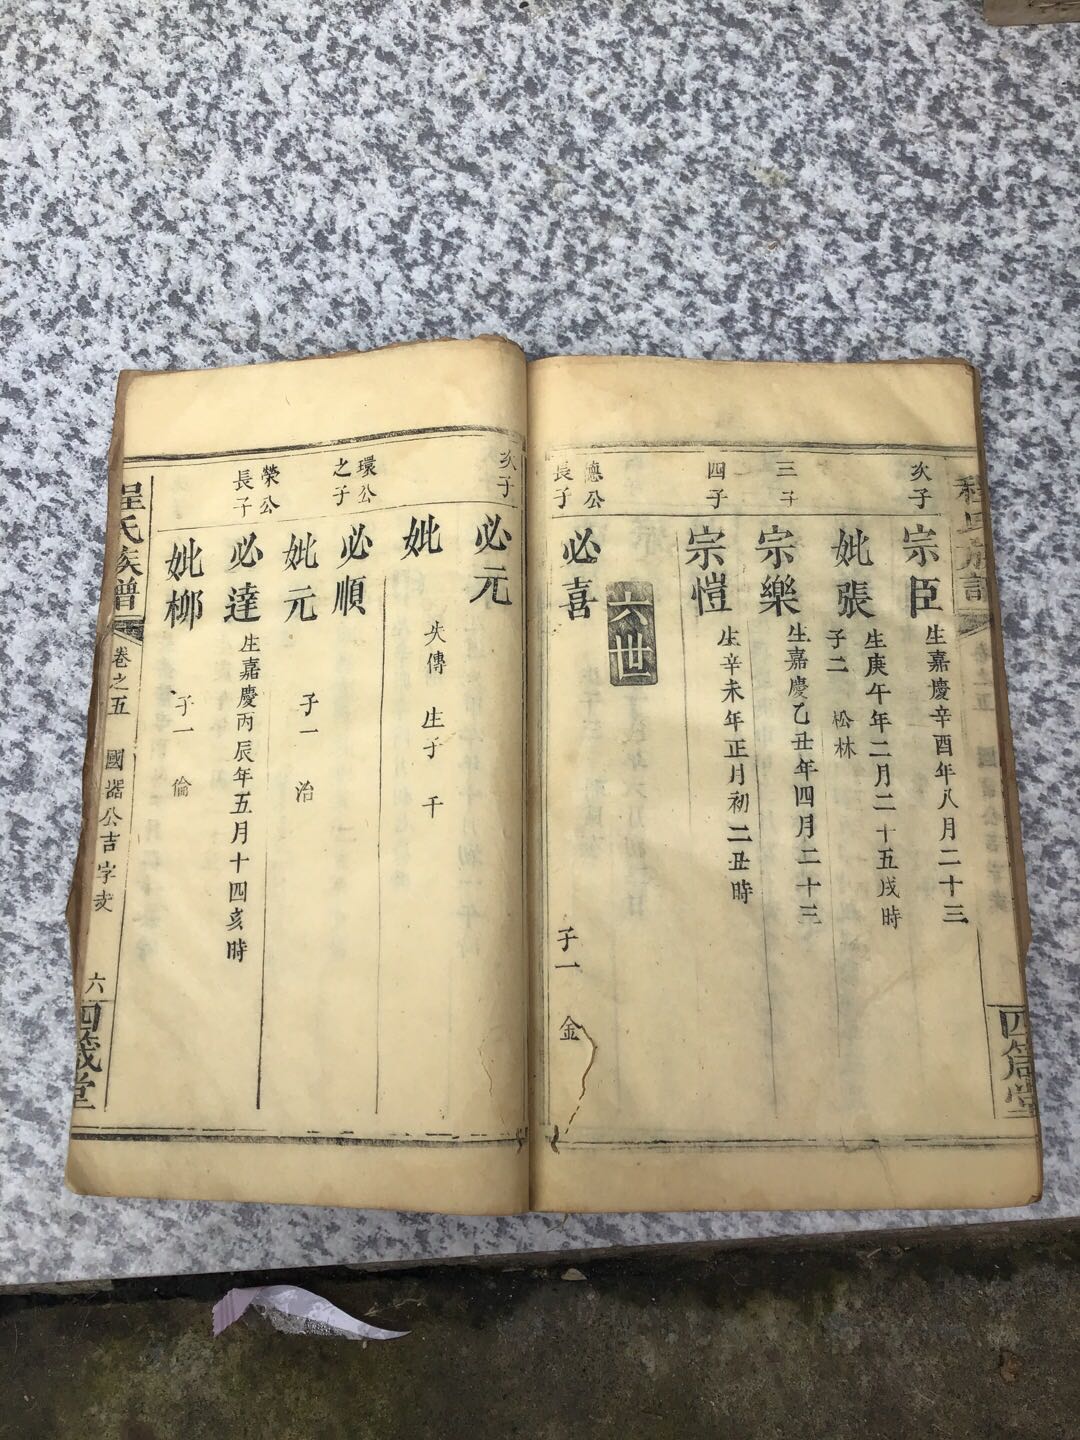 次子
宗臣
生嘉慶辛酉年八月二十三
妣張
生庚午年二月二十五戌時
子二 松林
三子
宗樂
生嘉慶乙丑年四月二十三
四子
宗愷
生辛未年正月初二丑時
六世
德公
長子
必喜
子一 金
四箴堂
次子
必元
妣
失傳 生子 千
環公
之子
必順
妣元
子一 治
榮公
長子
必達
生嘉慶丙辰年五月十四亥時
妣柳
子一 倫
程氏族譜
卷之五
國器公吉字
六
四箴堂